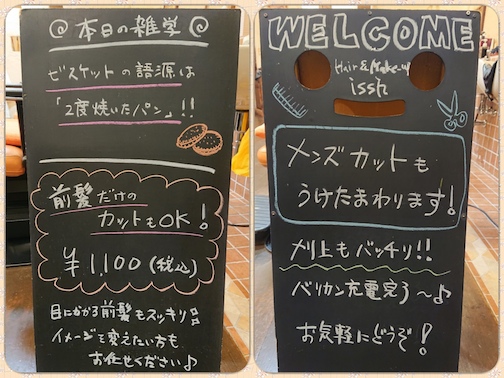 @ 本日の雑学 @
ビスケットの語源は
「2度焼いたパン」!!
前髪だけの
カットもOK!
¥1,100(税込)
目にかかる前髪もスッキリ
イメージを変えたい方も
お任せください♪
WELCOME
Hair & Make-up
issh
メンズカットも
うけたまわります!
刈上もバッチリ!!
バリカン充電完了〜♪
お気軽にどうぞ!